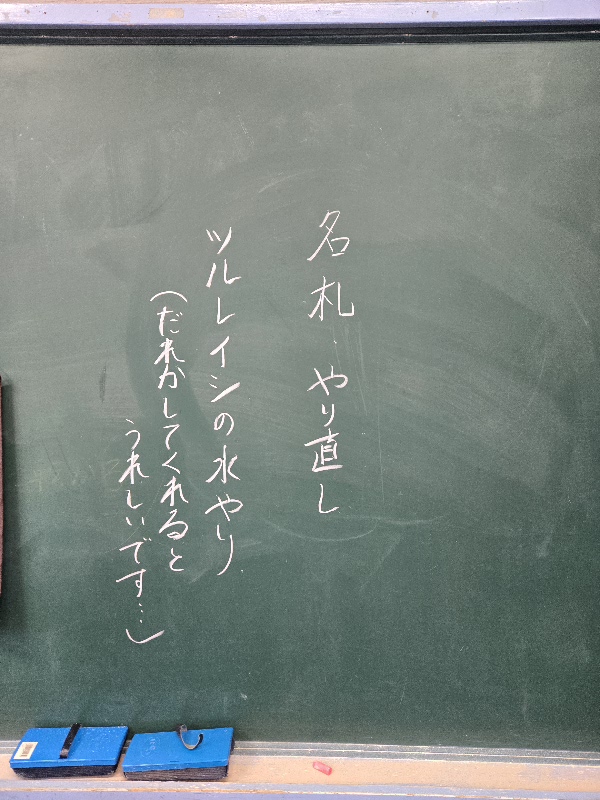 名札・やり直し
ツルレイシの水やり
(だれかしてくれると
うれしいです…)